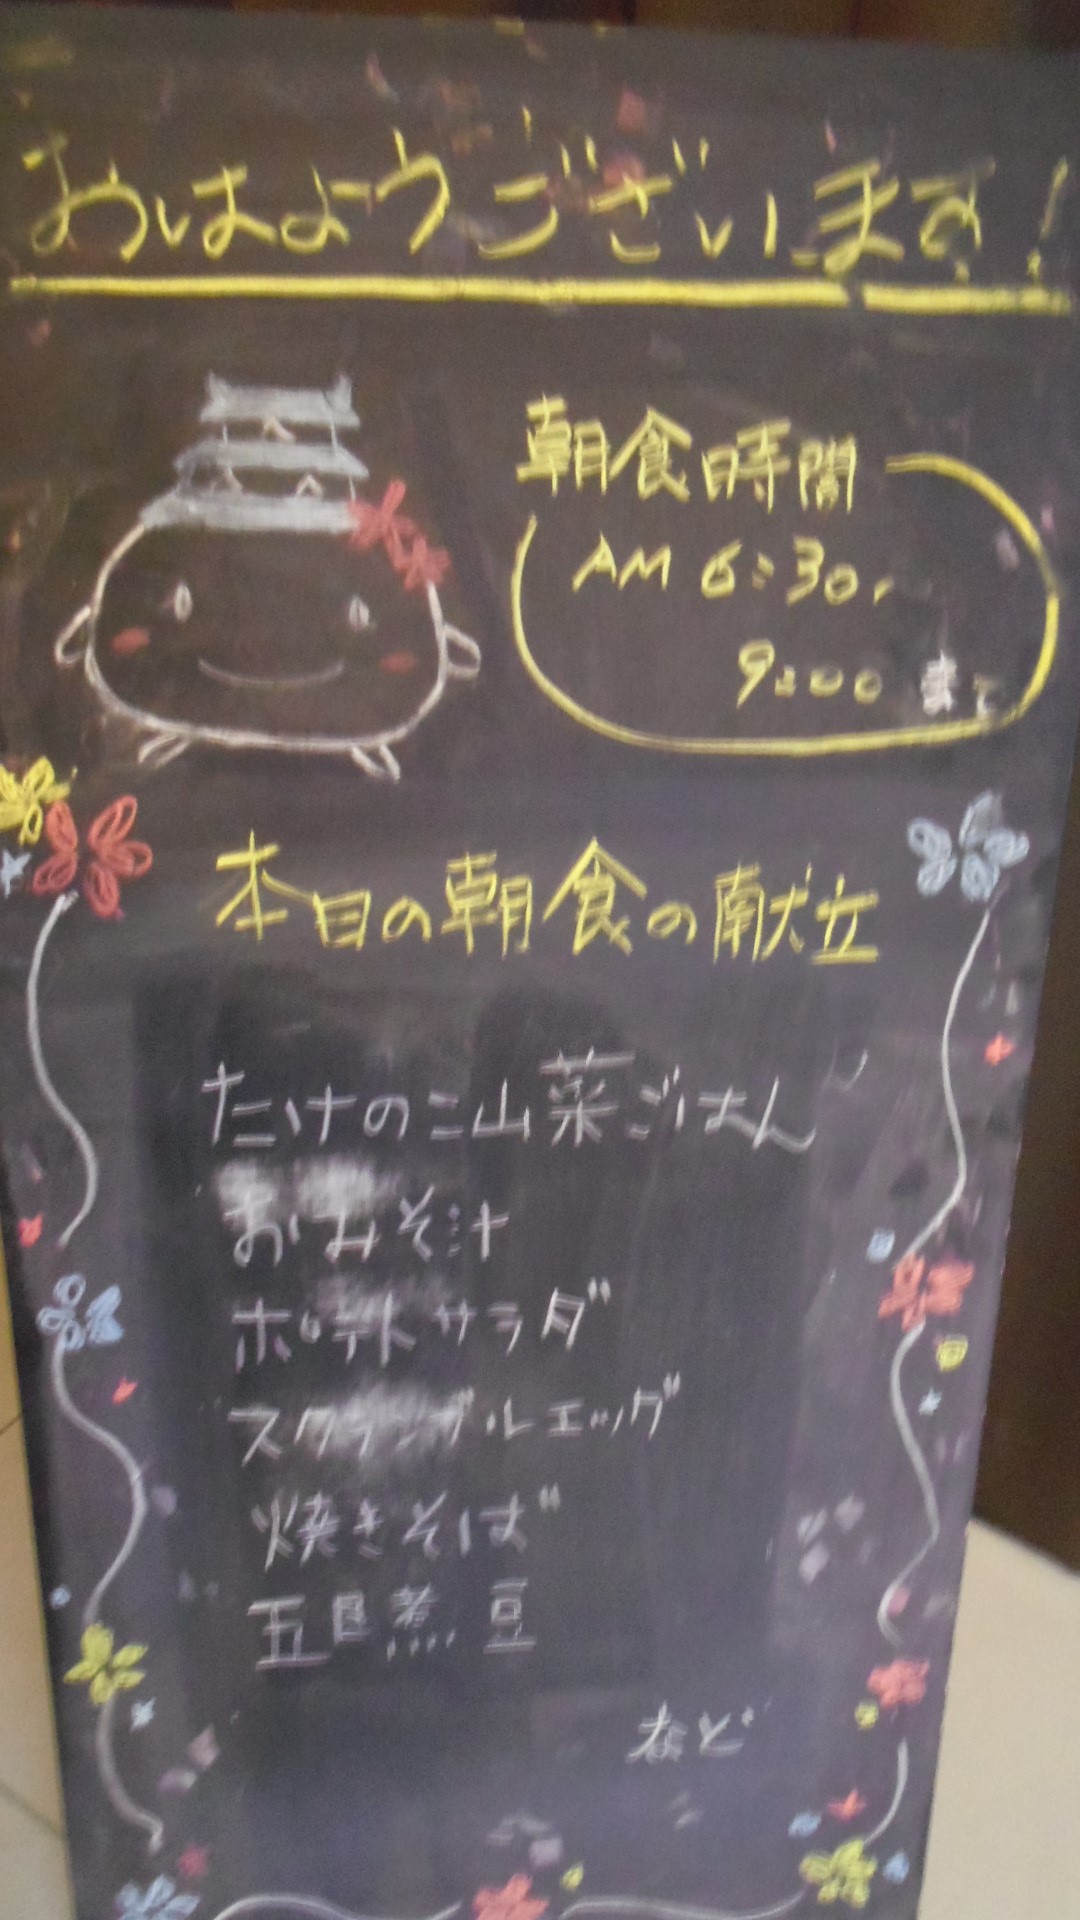 おはようございます!
朝食時間
AM 6:30〜
9:00 まで
本日の朝食の献立
たけのこ山菜ごはん
おみそ汁
ポテトサラダ
スクランブルエッグ
焼きそば
五目煮豆
など